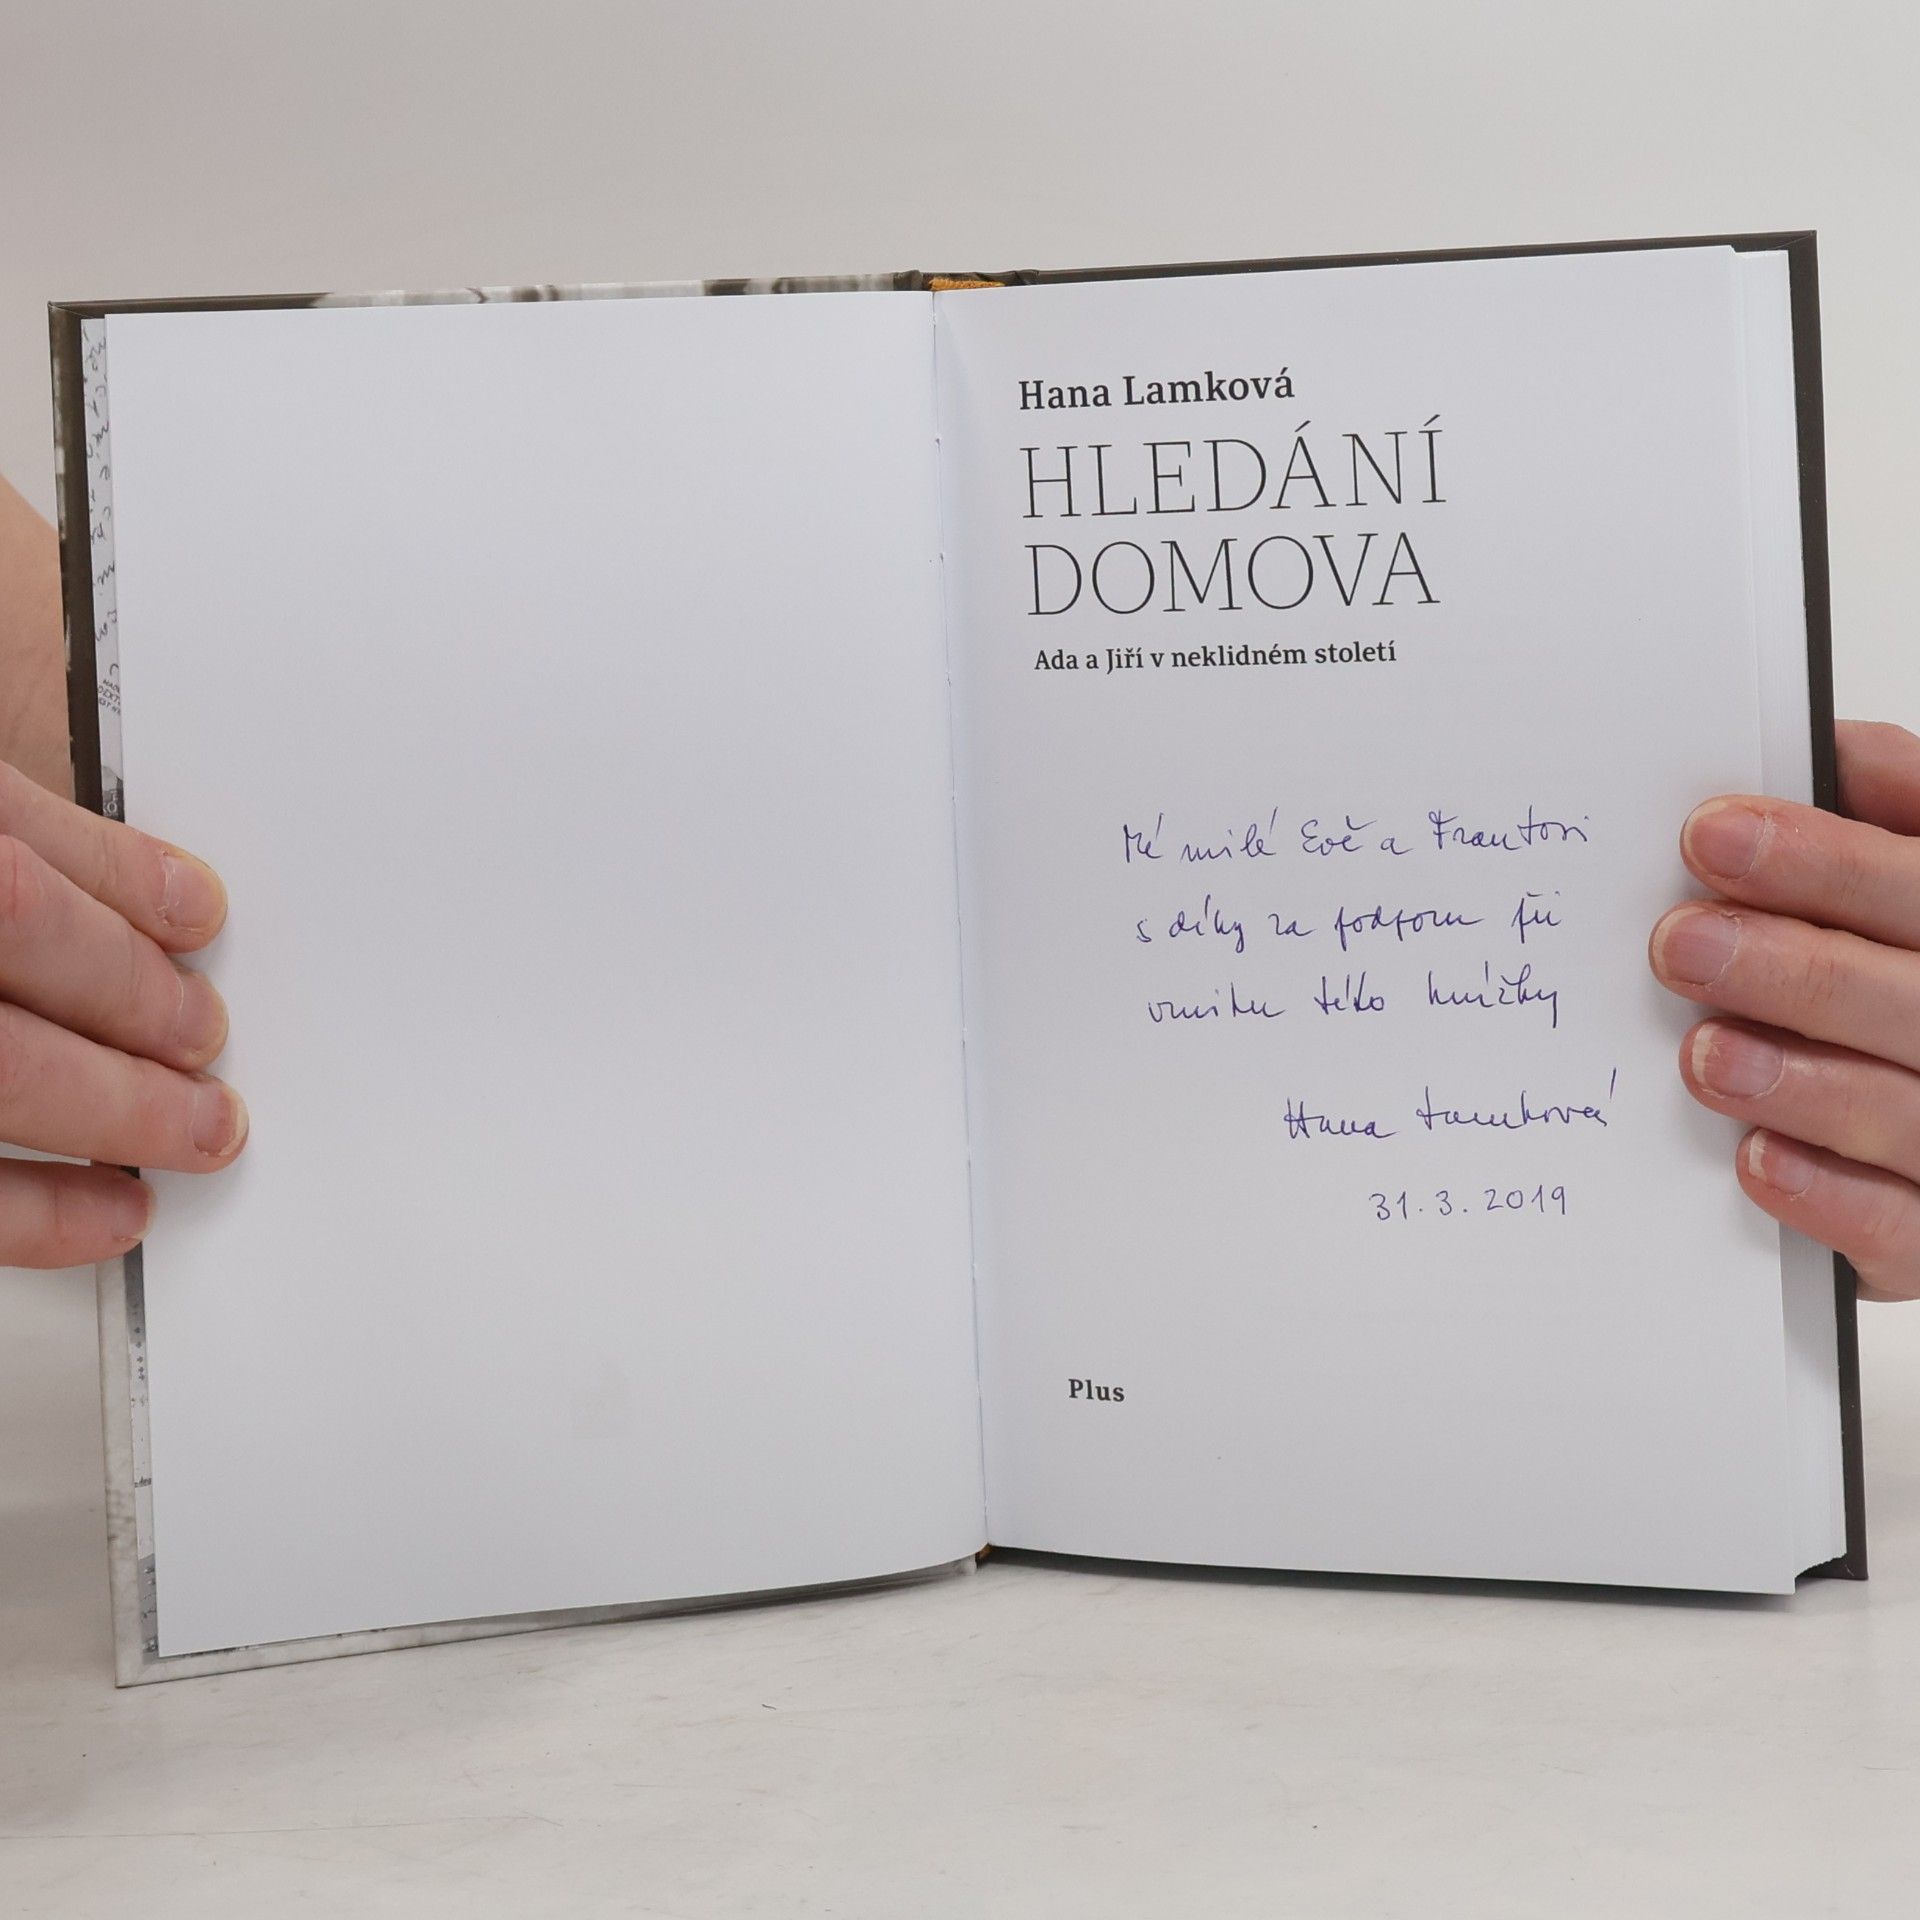 Hana Lamková
HLEDÁNÍ
DOMOVA
Ada a Jiří v neklidném století
Mé milé Evě a Frantovi
s díky za podporu při
vzniku této knížky
Hana Lamková
31.3.2019
Plus